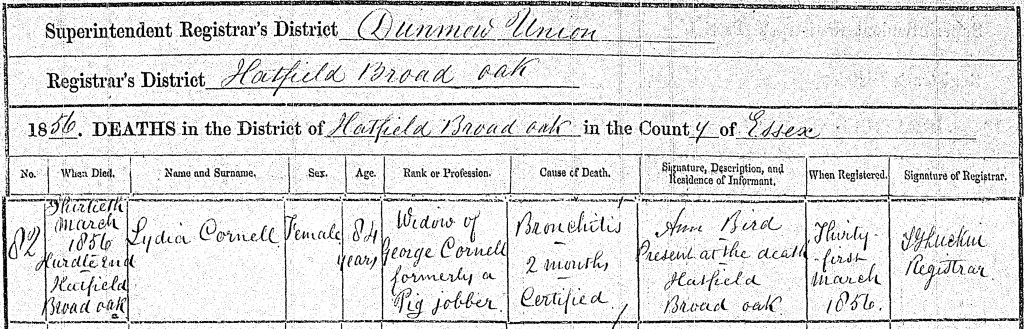 Superintendent Registrar's District Dunmow Union
Registrar's District Hatfield Broad oak
1856. DEATHS in the District of Hatfield Broad oak in the County of Essex
No. When Died. Name and Surname. Sex. Age. Rank or Profession. Cause of Death. Signature, Description, and Residence of Informant. When Registered. Signature of Registrar.
82
Thirtieth
March
1856
Hurdle End
Hatfield
Broad oak
Lydia Cornell
Female
84
years
Widow of
George Cornell
formerly a
Pig jobber
Bronchitis
2 months
Certified
Ann Bird
Present at the death
Hatfield
Broad oak
Thirty-
first
March
1856.
Registrar